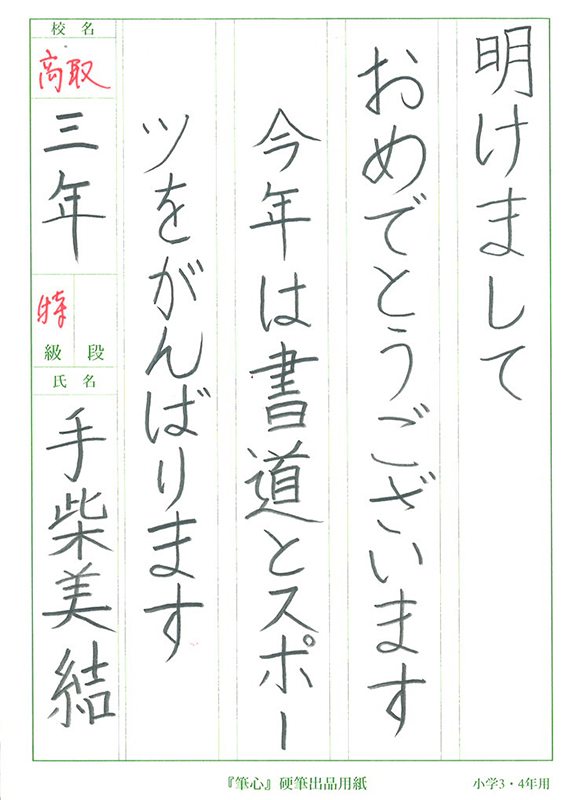 明けまして
おめでとうございます
今年は書道とスポー
ツをがんばります
校名
高取
三年
特
級段
氏名
手柴美結
『筆心』硬筆出品用紙
小学3・4年用